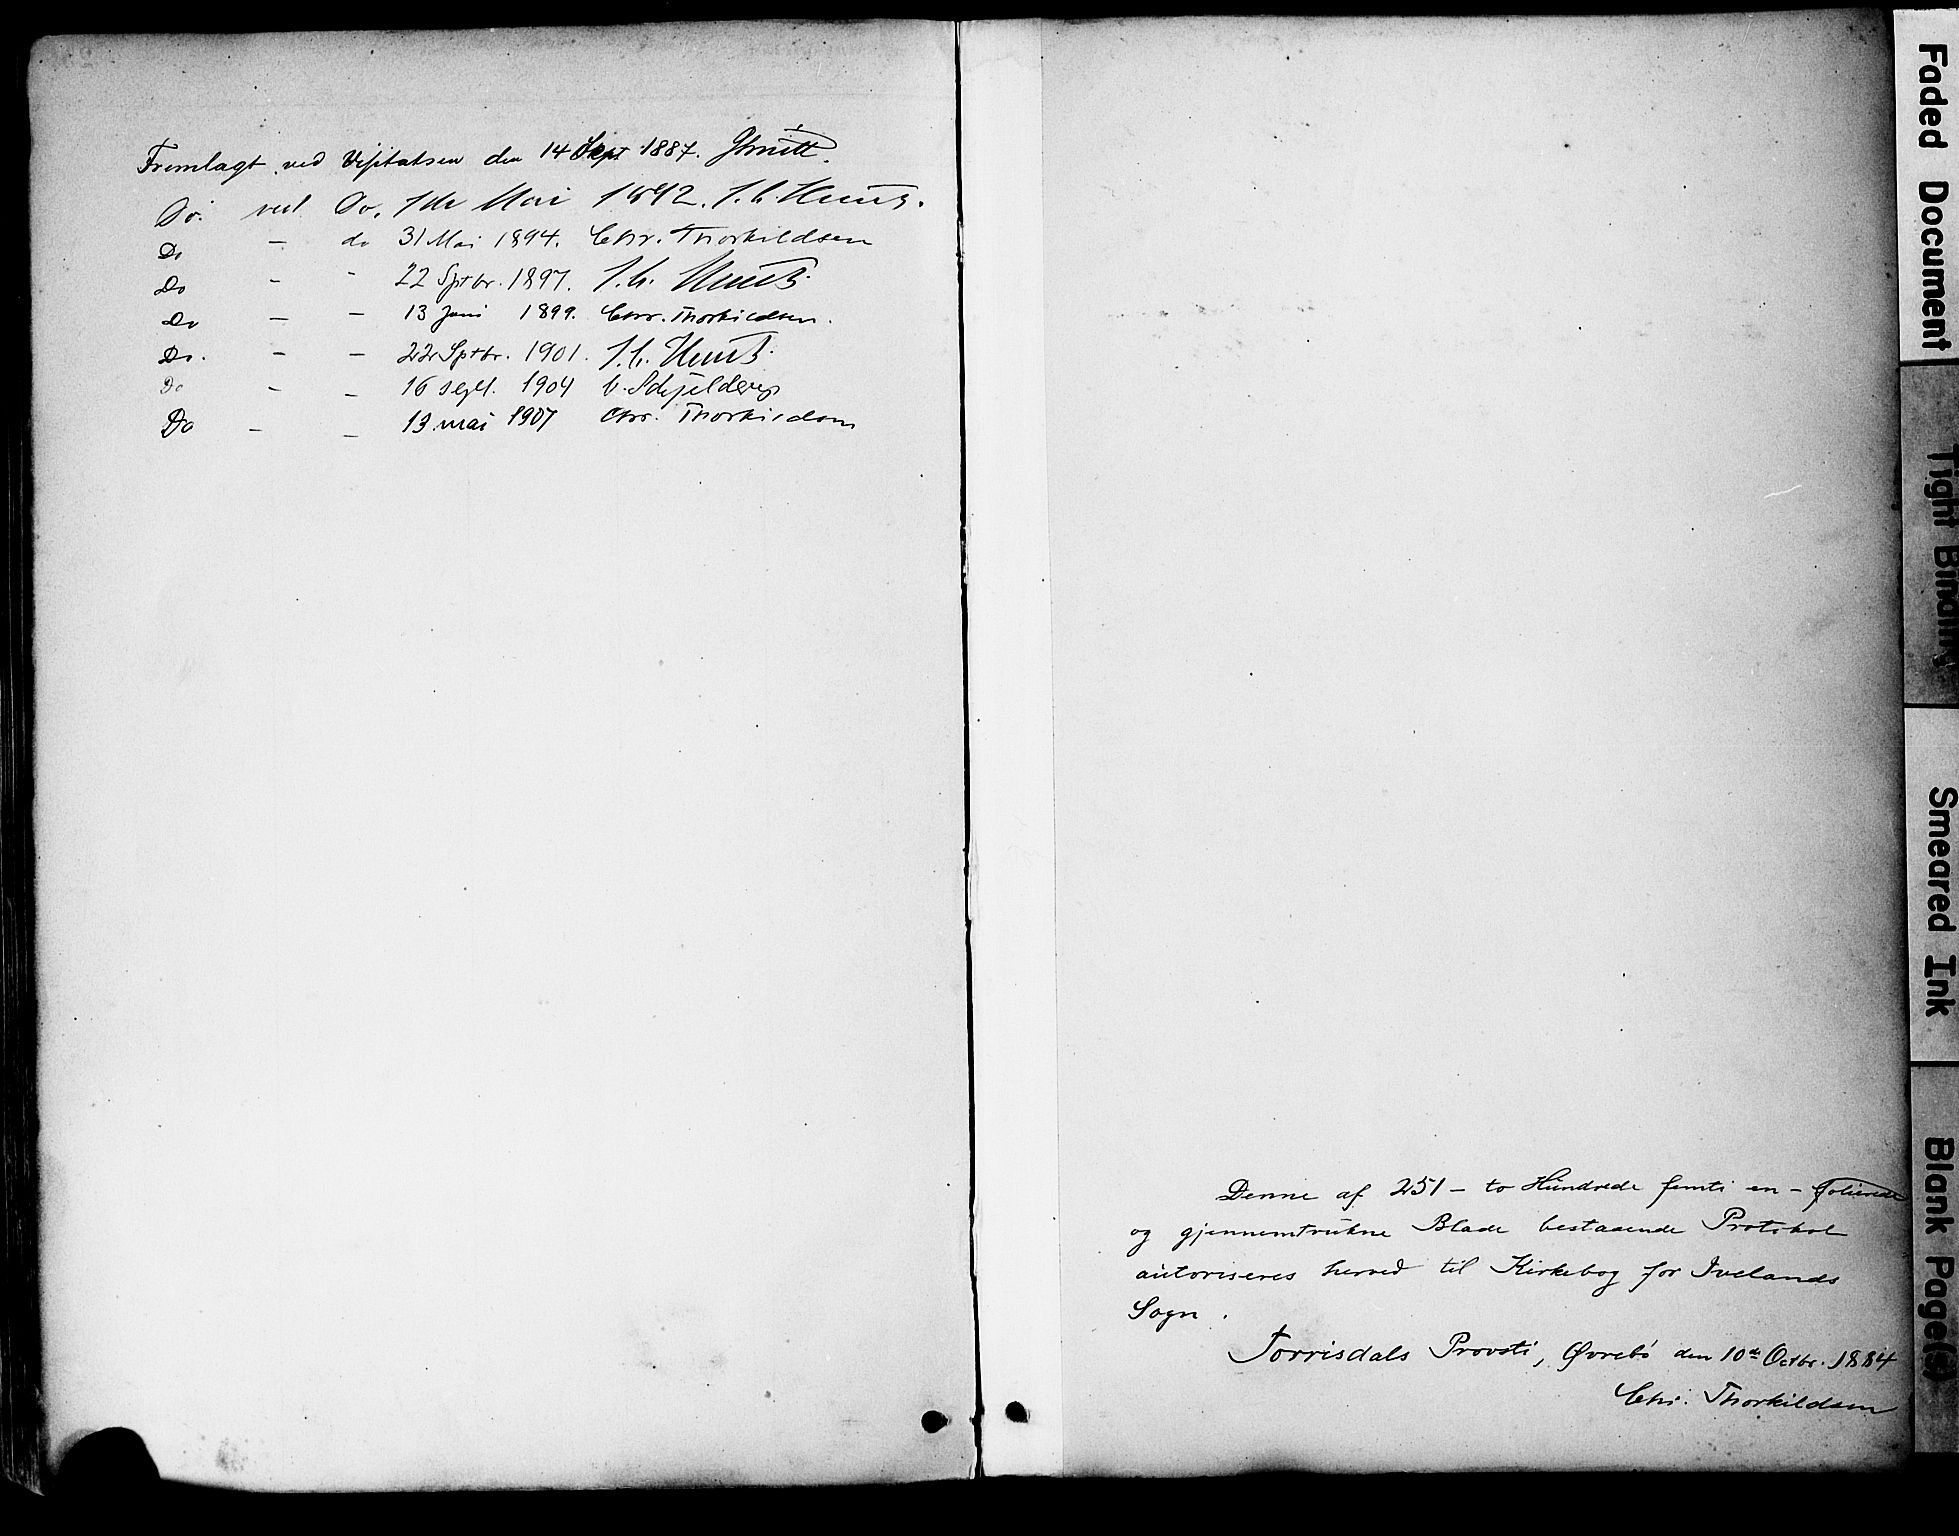 Fremlagt ved Visitatsen den 14 Sept 1887.
Do. ved Do. 1ste Mai 1892. J. C. Heuch.
Do – do 31 Mai 1894. Chr. Thorkildsen
Do - - 22 Sptbr. 1897. J. C. Heuch.
Do – – 13 Juni 1899. Chr. Thorkildsen.
Do. - – 22 Sptbr. 1901. J. C. Heuch.
Do - – 16 sept. 1904 Schjelderup
Do – – 13. mai 1907 Chr. Thorkildsen
Denne af 251 – to Hundrede femti en – folierede
og gjennemtrukne Blade bestaaende Protokol
autoriseres herved til Kirkebog for Ivelands
Sogn.
Torrisdals Provsti, Øvrebö den 10de Octbr. 1884
Chr. Thorkildsen
Faded Document
Tight Binding
Smeared Ink
Blank Page(s)